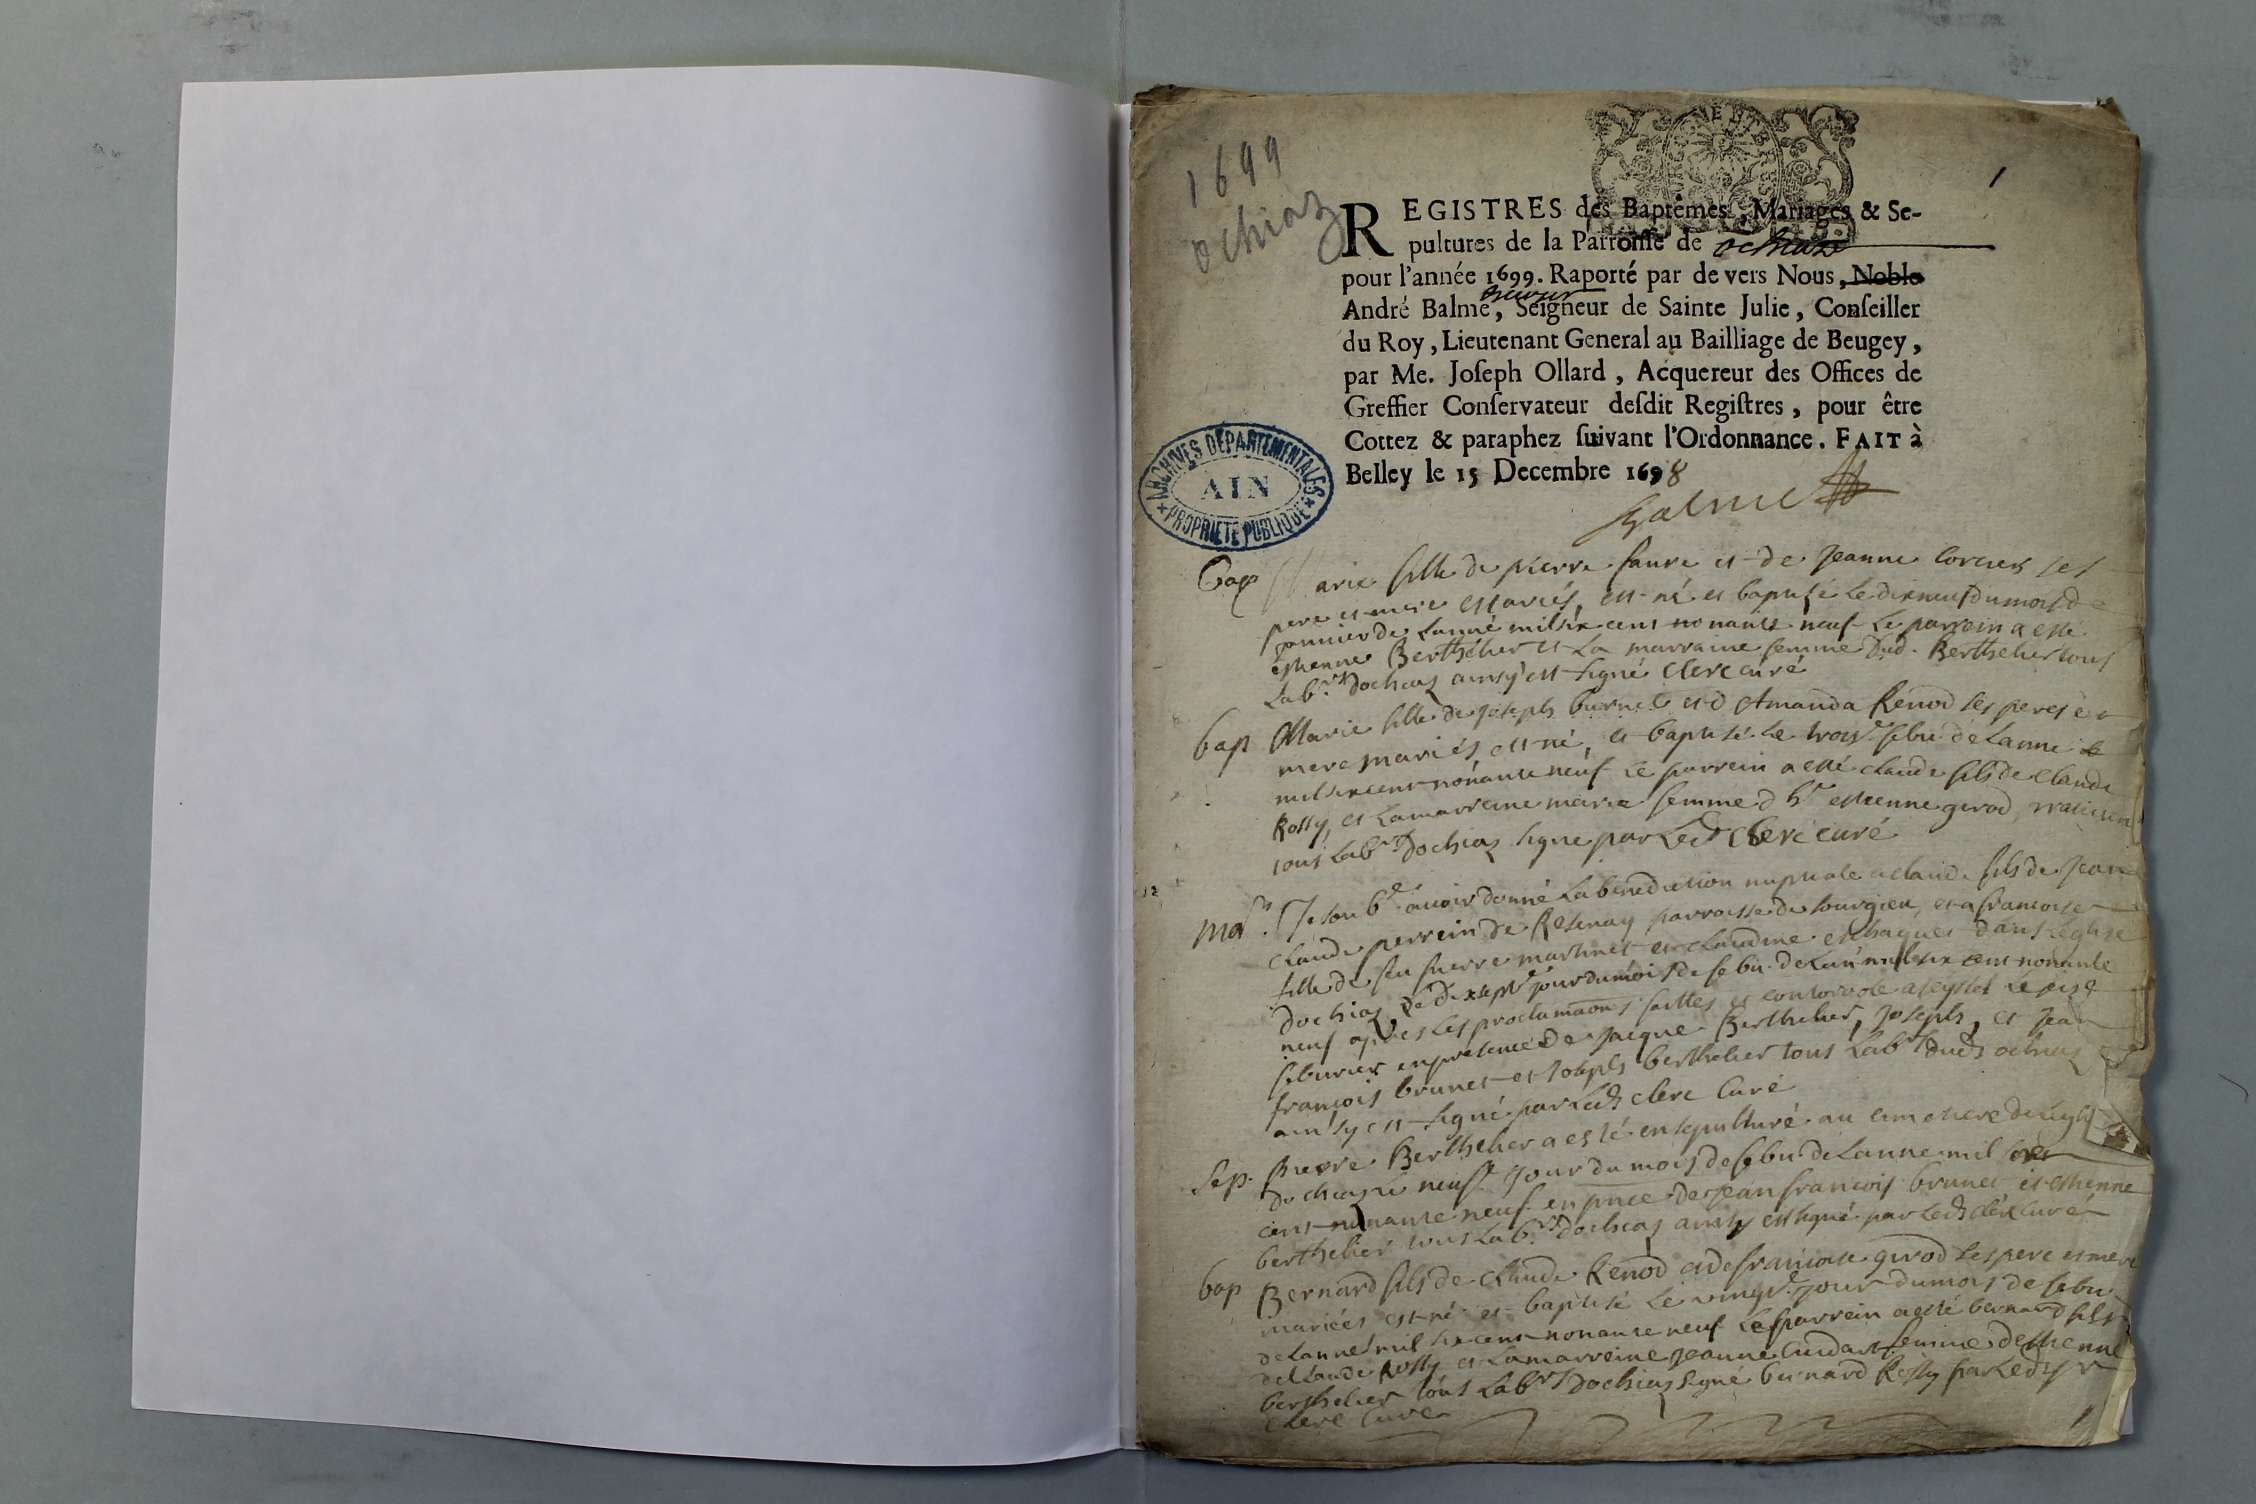 1699
ochiaz
1
REGISTRES des Baptêmes, Mariages & Se-
pultures de la Parroisse de ochiaz
pour l'année 1699. Raporté par de vers Nous, Noble
André Balme, Seigneur de Sainte Julie, Conseiller
du Roy, Lieutenant General au Bailliage de Beugey,
par Me. Joseph Ollard, Acquereur des Offices de
Greffier Conservateur desdit Registres, pour être
Cottez & paraphez suivant l'Ordonnance. FAIT à
Belley le 15 Decembre 1698
Balme
ARCHIVES DÉPARTEMENTALES
AIN
PROPRIÉTÉ PUBLIQUE
bap Marie fille de pierre faure et de Jeanne ses
pere et mere mariés, est né et baptisé le dixneuf du mois de
janvier de lanné mil six cent nonante neuf le parrein a esté
estienne Berthelier et la marraine femme dud. Berthelier tous
labrs dochiaz ainsy est signé clerc curé
bap Marie fille de joseph burnet et d Amanda Renod ses pere et
mere mariés est né, et baptisé le trois.e febu de lanné
mil six cent nonante neuf le parrein a esté claude fils de claude
Rossy, et la marreine marie femme d h.e estienne girod
tous labrs dochiaz signe par led clerc curé
ma. Je soub.é avoir donné la benediction nuptiale a claude fils de Jean
claude perrein de parroisse de et a francoise
fille de feu pierre martinet et claudine dans leglise
dochiaz le dixsept.e jour du mois de febu. de lan mil six cent nonante
neuf apres les proclamaons faittes et le
feburier en presence de jacque Berthelier, joseph, et jean
françois brunet et joseph berthelier tous labrs dud ochiaz
ainsy est signé par led clerc curé
Sep. pierre Berthelier a esté ensepulturé au cimetiere de legl
dochiaz le neuf.e jour du mois de febu de lanne mil six
cent nonante neuf en pnce de jean francois brunet et estienne
berthelier tous labrs dochiaz ainsy est signé par led clerc curé
bap Bernard fils de claude Renod et de francoise girod ses pere et mere
mariées est né et baptisé le vingt.e jour du mois de febu
de lanné mil six cent nonante neuf le parrein a esté bernard fils
de claude Rossy et la marreine jeanne femme destienne
berthelier tous labrs dochiaz signé bernard Rossy par led sr
clerc curé